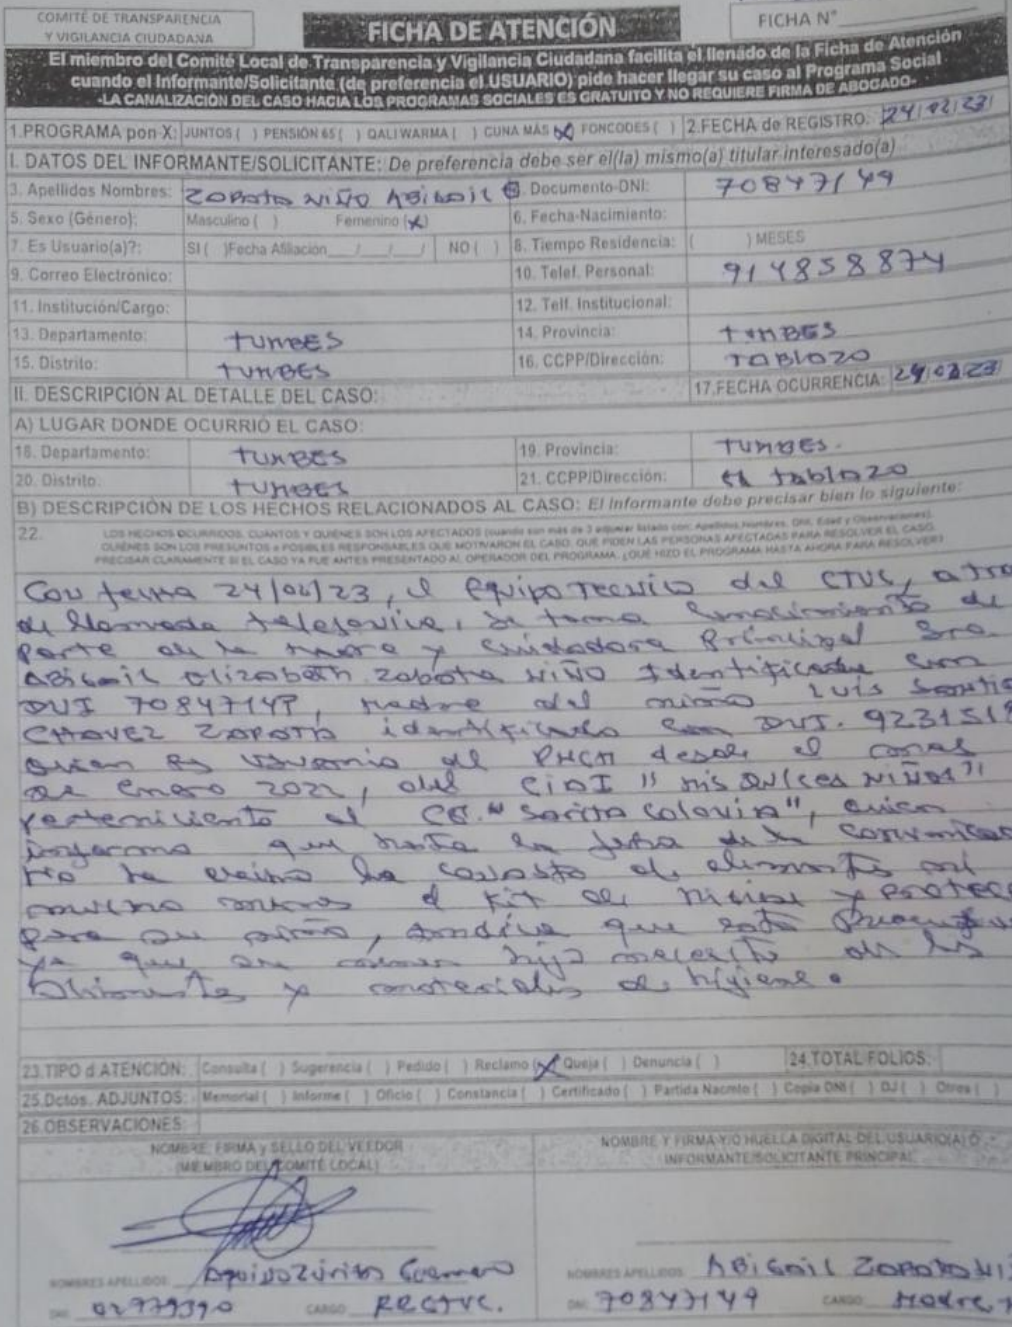 COMITÉ DE TRANSPARENCIA
Y VIGILANCIA CIUDADANA
FICHA DE ATENCIÓN
FICHA N°
El miembro del Comité Local de Transparencia y Vigilancia Ciudadana facilita el llenado de la Ficha de Atención
cuando el Informante/Solicitante (de preferencia el USUARIO) pide hacer llegar su caso al Programa Social
-LA CANALIZACIÓN DEL CASO HACIA LOS PROGRAMAS SOCIALES ES GRATUITO Y NO REQUIERE FIRMA DE ABOGADO-
1.PROGRAMA pon X: JUNTOS ( ) PENSIÓN 65 ( ) QALI WARMA ( ) CUNA MÁS (X) FONCODES ( ) 2.FECHA de REGISTRO: 24/02/23
I. DATOS DEL INFORMANTE/SOLICITANTE: De preferencia debe ser el(la) mismo(a) titular interesado(a)
3. Apellidos Nombres: Zapata Niño Abigail E Documento-DNI: 70847149
5. Sexo (Género): Masculino ( ) Femenino (X) 6. Fecha-Nacimiento:
7. Es Usuario(a)?: SI ( ) Fecha Afiliación / / NO ( ) 8. Tiempo Residencia: ( ) MESES
9. Correo Electrónico: 10. Telef. Personal: 914858874
11. Institución/Cargo: 12. Telf. Institucional:
13. Departamento: TUMBES 14. Provincia: TUMBES
15. Distrito: TUMBES 16. CCPP/Dirección: TABLAZO
II. DESCRIPCIÓN AL DETALLE DEL CASO: 17.FECHA OCURRENCIA: 24/02/23
A) LUGAR DONDE OCURRIÓ EL CASO:
18. Departamento: TUMBES 19. Provincia: TUMBES.
20. Distrito: TUMBES 21. CCPP/Dirección: el tablazo
B) DESCRIPCIÓN DE LOS HECHOS RELACIONADOS AL CASO: El informante debe precisar bien lo siguiente:
22. LOS HECHOS OCURRIDOS, CUANTOS Y QUIÉNES SON LOS AFECTADOS (cuando son más de 3 adjuntar listado con: Apellidos Nombres, DNI, Edad y Observaciones).
QUIÉNES SON LOS PRESUNTOS o POSIBLES RESPONSABLES QUE MOTIVARON EL CASO. QUE PIDEN LAS PERSONAS AFECTADAS PARA RESOLVER EL CASO.
PRECISAR CLARAMENTE SI EL CASO YA FUE ANTES PRESENTADO AL OPERADOR DEL PROGRAMA. ¿QUÉ HIZO EL PROGRAMA HASTA AHORA PARA RESOLVER?
Con fecha 24/02/23, el Equipo Tecnico del CTVC, a tra
de llamada telefonica, se toma conocimiento de
parte de la madre y cuidadora Principal Sra.
Abigail Elizabeth Zapata Niño Identificada con
DNI 70847149, madre del niño Luis
CHAVEZ ZAPATA identificado con DNI. 9231519
quien es usuario del PNCM desde el
de enero 2022, del CIAI "Mis Dulces Niños"
perteneciente al CG. "Sarita Colonia", quien
informa que hasta la fecha de la
No ha la canasta de alimentos ni
el kit de y
para su niño, que esta
ya que su hijo necesita de los
alimentos y materiales de higiene.
23.TIPO d ATENCIÓN: Consulta ( ) Sugerencia ( ) Pedido ( ) Reclamo (X) Queja ( ) Denuncia ( ) 24.TOTAL FOLIOS:
25.Dctos. ADJUNTOS: Memorial ( ) Informe ( ) Oficio ( ) Constancia ( ) Certificado ( ) Partida Nacmto ( ) Copia DNI ( ) DJ ( ) Otros ( )
26.OBSERVACIONES:
NOMBRE, FIRMA y SELLO DEL VEEDOR
(MIEMBRO DEL COMITÉ LOCAL)
NOMBRE Y FIRMA Y/O HUELLA DIGITAL DEL USUARIO(A) Ó
INFORMANTE/SOLICITANTE PRINCIPAL
NOMBRES APELLIDOS
NOMBRES APELLIDOS Abigail Zapata Ni
DNI 02779390 CARGO
DNI 70847149 CARGO Madre